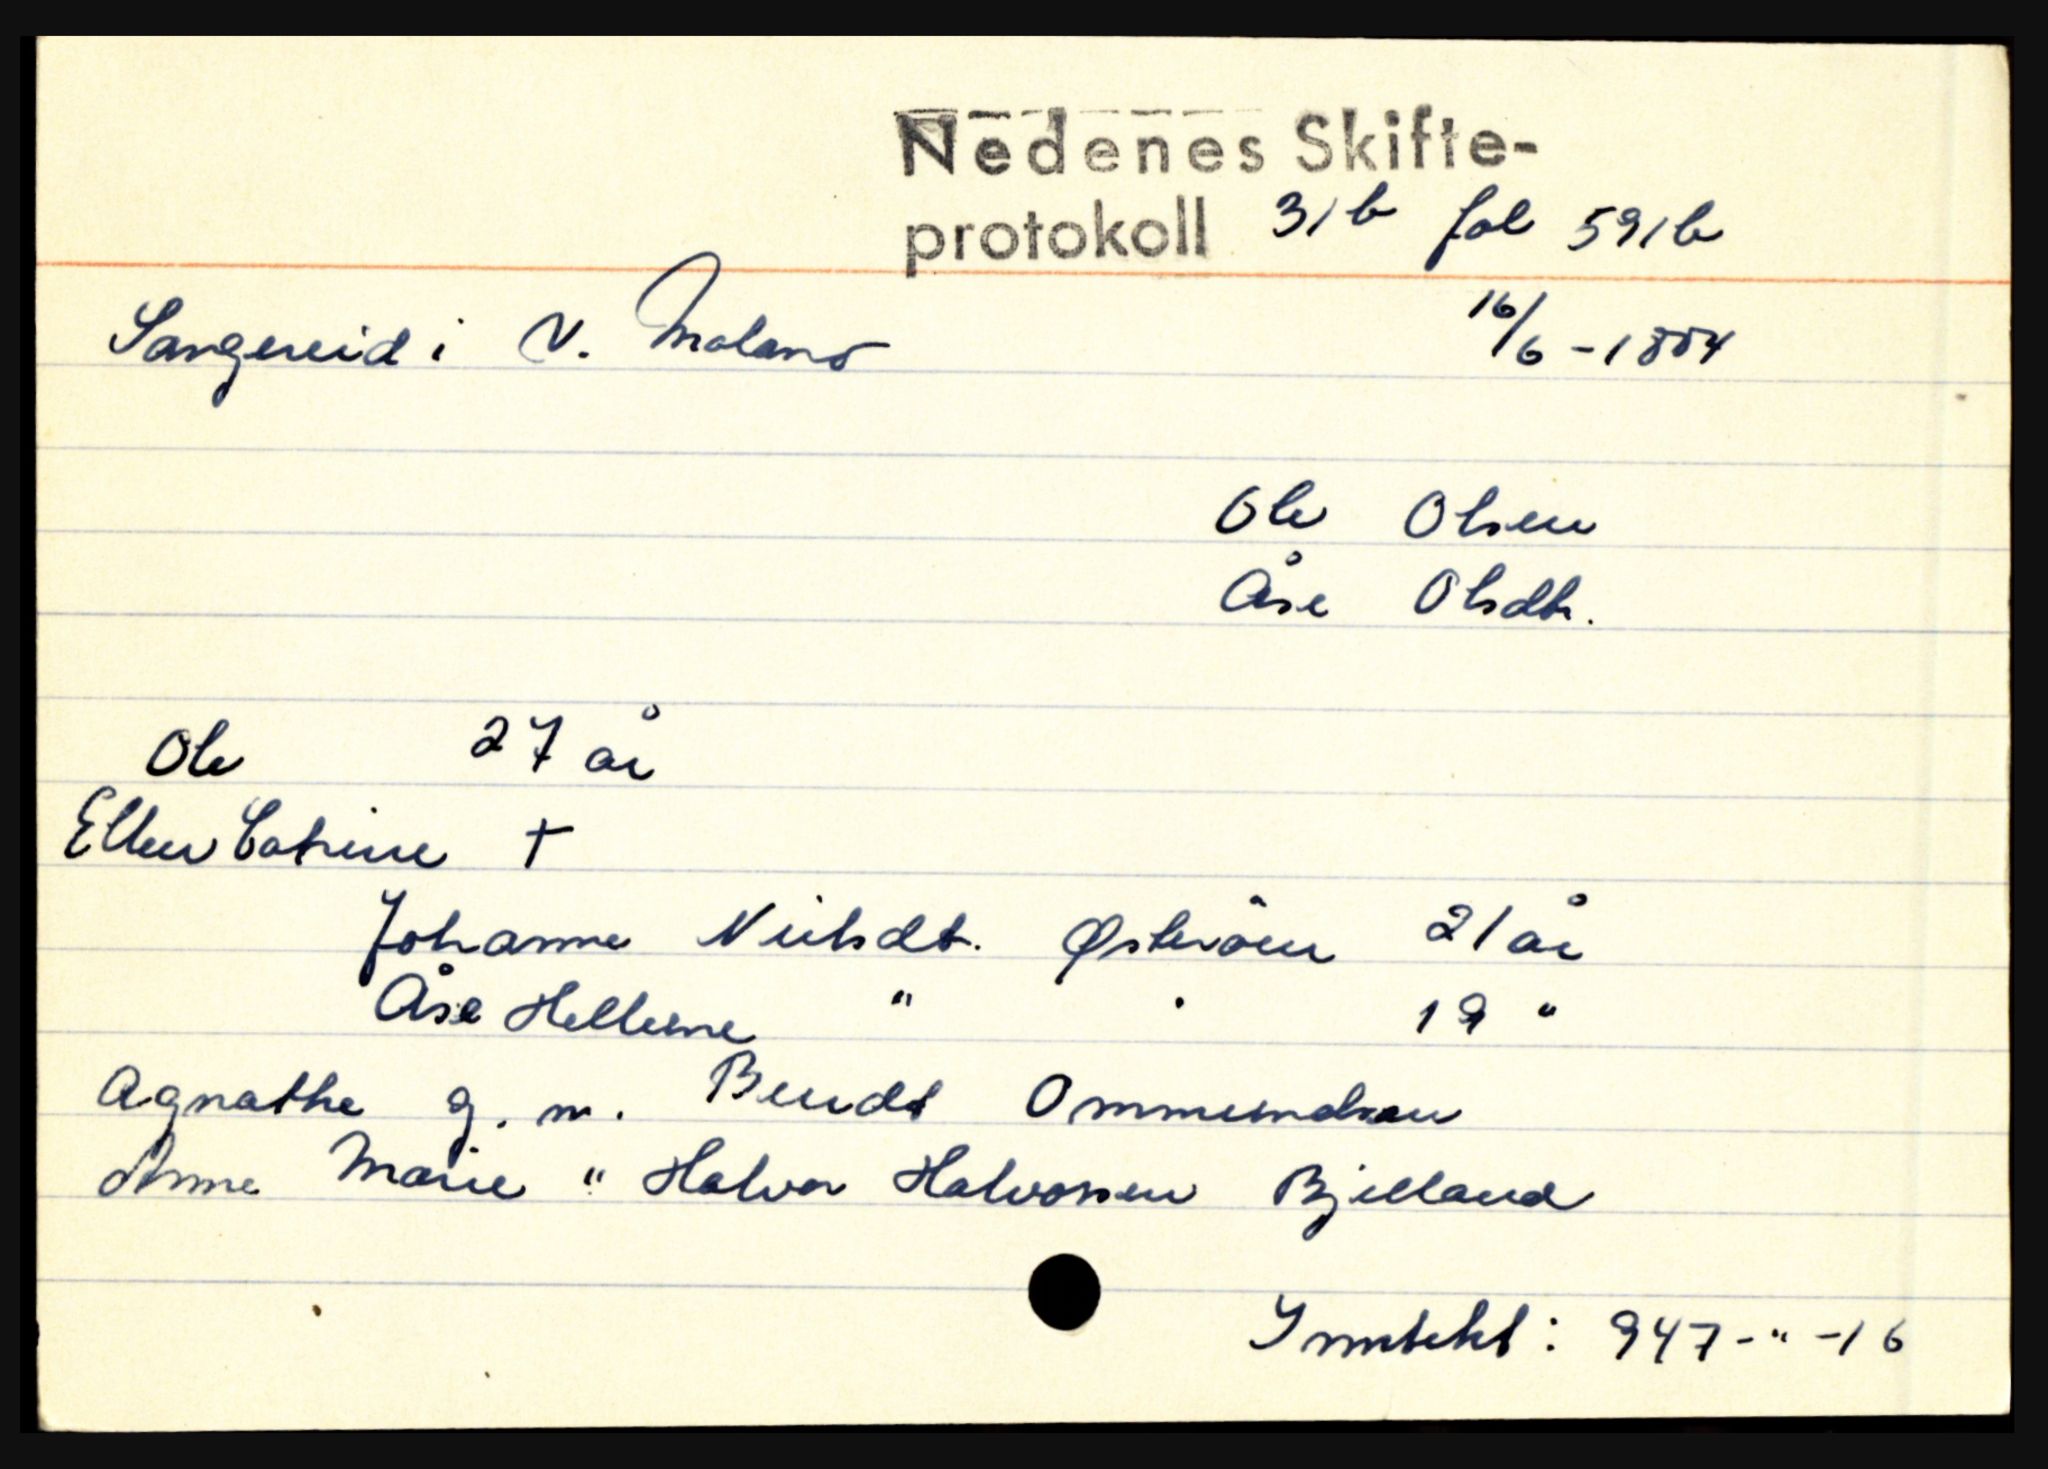 Nedenes Skifte-
protokoll 31b fol 591b
Sangereid i V. Moland 16/6 - 1884
Ole Olsen
Åse Olsdtr.
Ole 27 år
Ellen Catrine †
Johanne Neilsdt. Østeråen 21 år
Åse Hellene " " 19 "
Agnathe g. m. Bendt Ommundsen
Anne Marie " Halvor Halvorsen Bjelland
Inntekt: 947-"-16